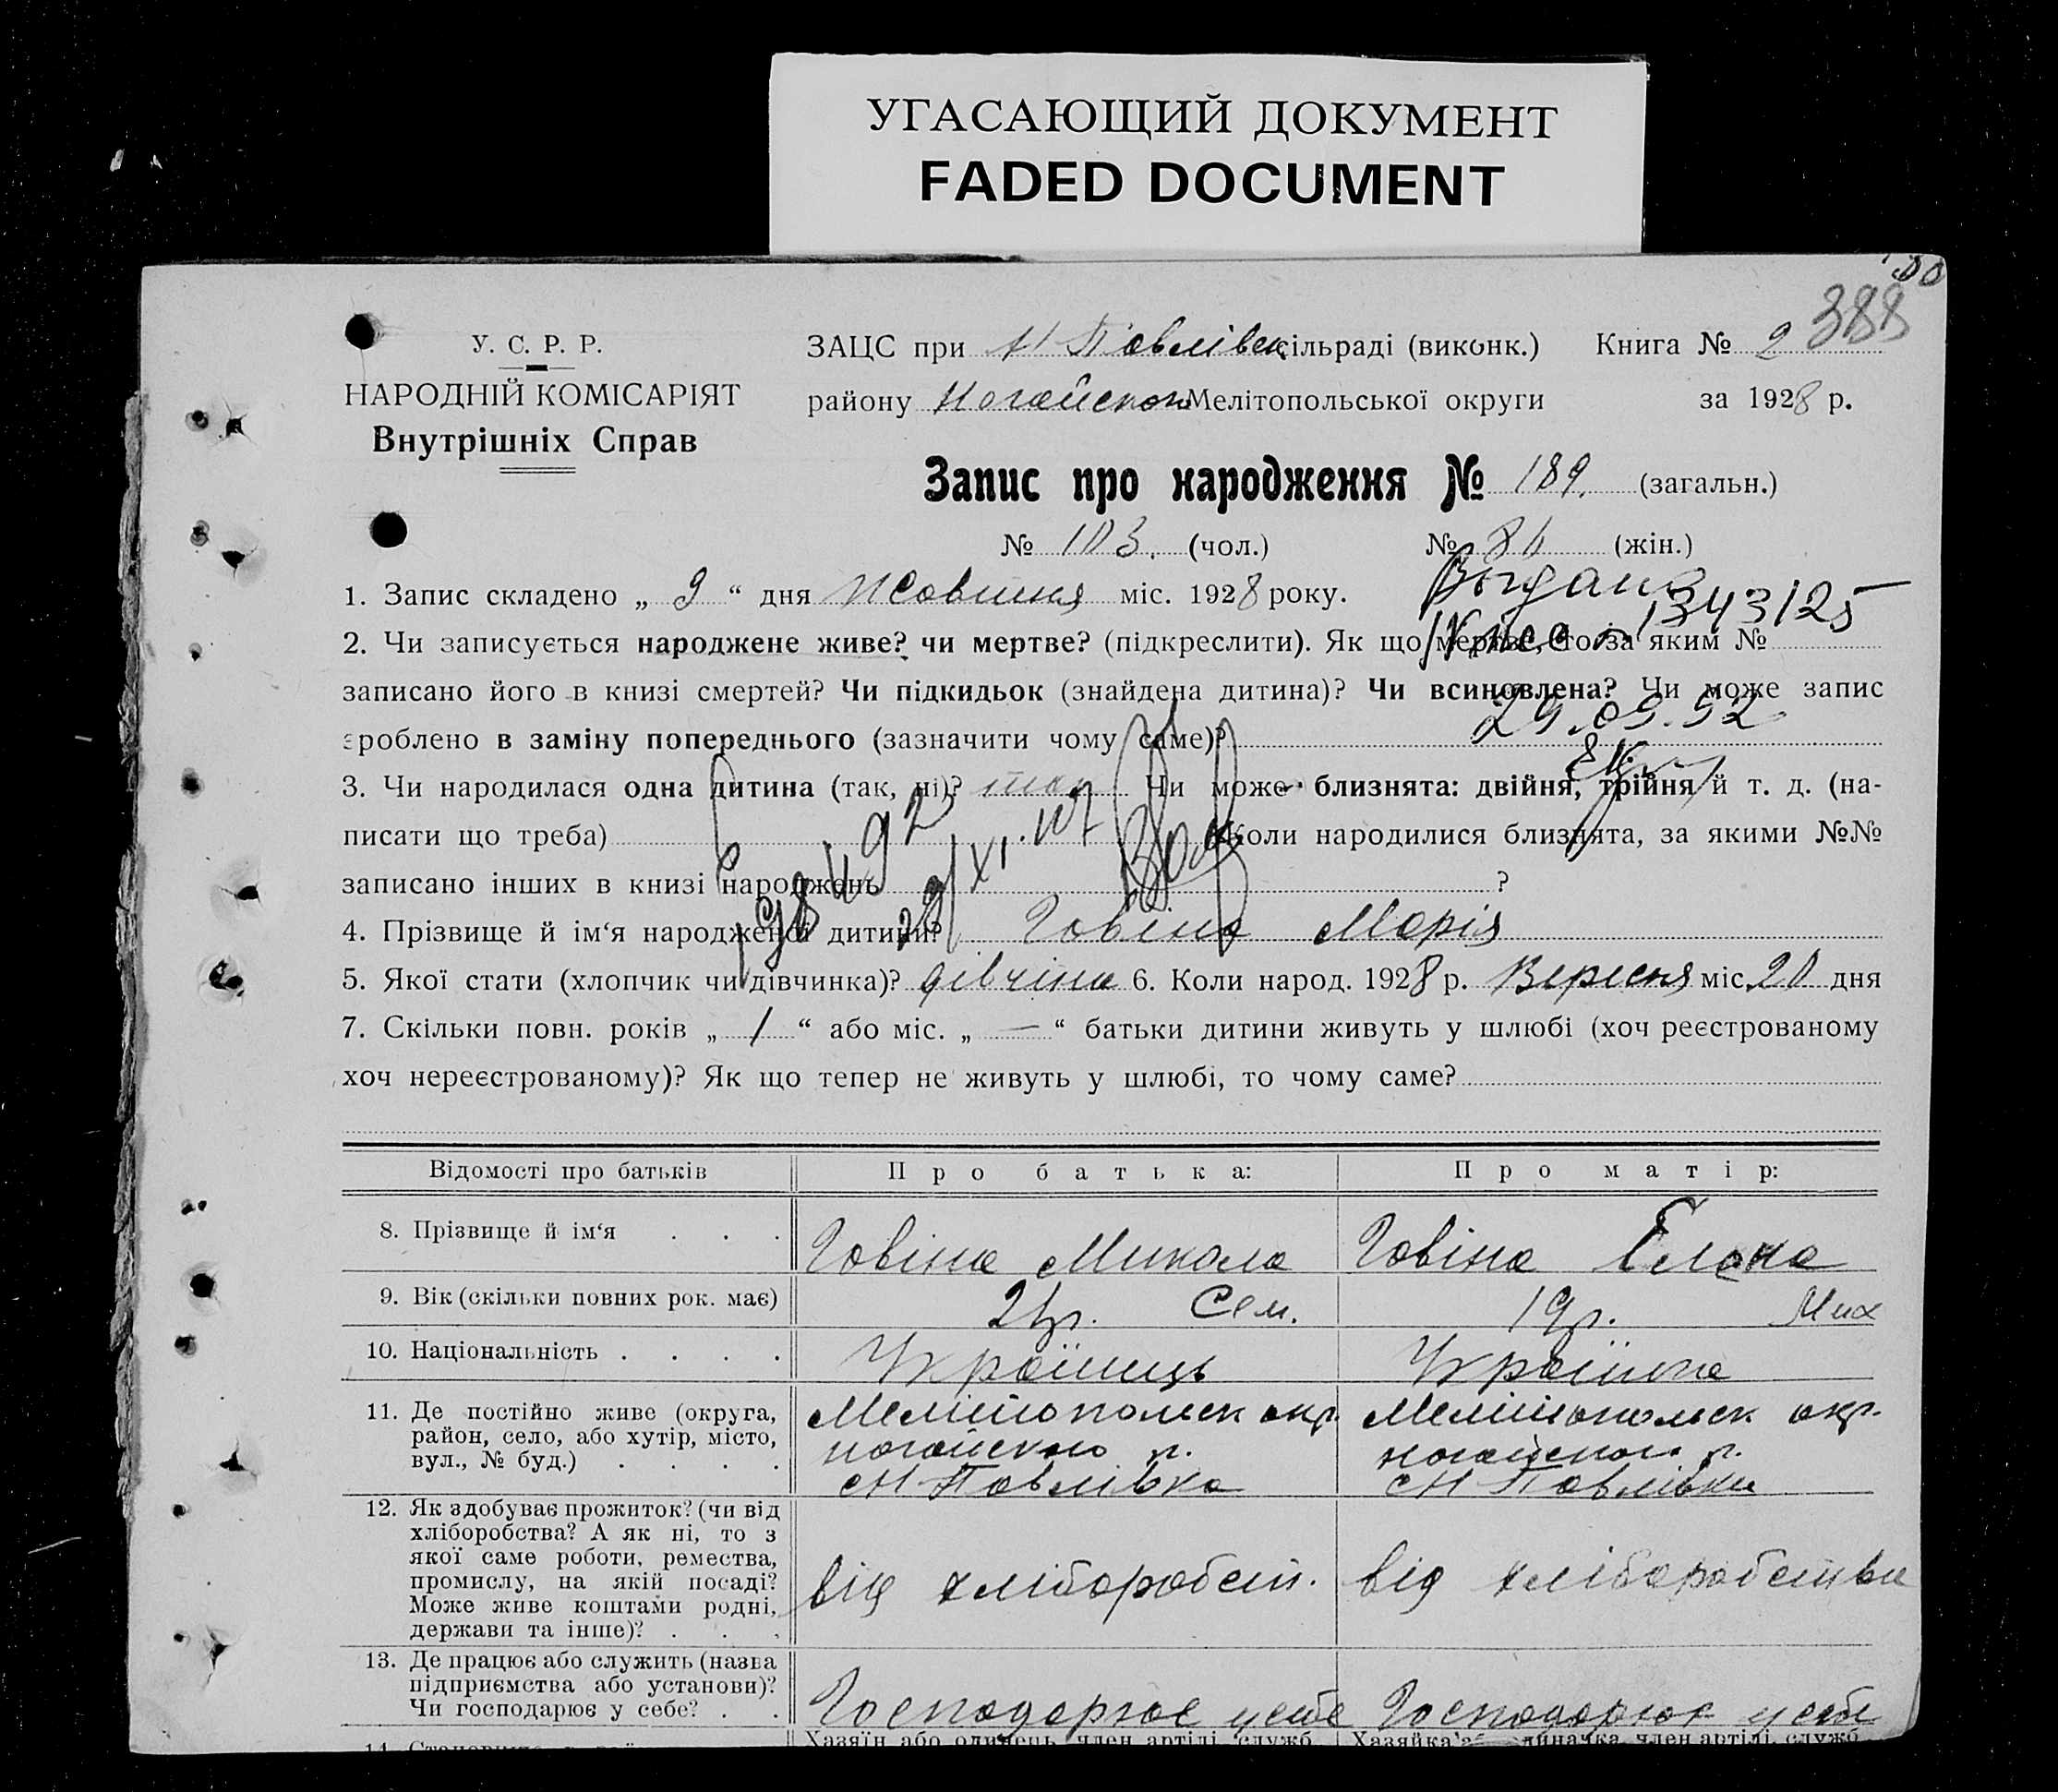 УГАСАЮЩИЙ ДОКУМЕНТ
FADED DOCUMENT
388
У. С. Р. Р.
НАРОДНІЙ КОМІСАРІЯТ
Внутрішніх Справ
ЗАЦС при Н Павлівск. сільраді (виконк.) Книга № 2
району Ногайськог Мелітопольської округи за 1928 р.
Запис про народження № 189. (загальн.)
№ 103. (чол.) № 86 (жін.)
1. Запис складено „ 9 “ дня Жовтня міс. 1928 року.
1343125
2. Чи записується народжене живе? чи мертве? (підкреслити). Як що мертве, то за яким №
записано його в книзі смертей? Чи підкидьок (знайдена дитина)? Чи всиновлена? Чи може запис
29.09.52
зроблено в заміну попереднього (зазначити чому саме)?
3. Чи народилася одна дитина (так, ні)? так Чи може близнята: двійня, трійня й т. д. (на-
писати що треба) Коли народилися близнята, за якими №№
записано інших в книзі народжень ?
4. Прізвище й ім‘я народженої дитини? Говіна Марія
5. Якої стати (хлопчик чи дівчинка)? дівчіна 6. Коли народ. 1928 р. Вересня міс. 20 дня
7. Скільки повн. років „ 1 “ або міс. „ — “ батьки дитини живуть у шлюбі (хоч реєстрованому
хоч нереєстрованому)? Як що тепер не живуть у шлюбі, то чому саме?
Відомості про батьків Про батька: Про матір:
8. Прізвище й ім‘я . . . Говіна Микола Говіна Елена
9. Вік (скільки повних рок. має) Сем. 19р. Мих
10. Національність . . . . Українець Українка
11. Де постійно живе (округа, Мелітопольск окр. Мелітопольск окр.
район, село, або хутір, місто, ногайского р. ногайског р.
вул., № буд.) . . . . с Н Павлівка с Н Павлівки
12. Як здобуває прожиток? (чи від
хліборобства? А як ні, то з
якої саме роботи, ремества,
промислу, на якій посаді? від хліборобст. від хліборобства
Може живе коштами родні,
держави та інше)? . . .
13. Де працює або служить (назва
підприємства або установи)?
Чи господарює у себе? . . Господарює у себе Господарює у себе
Хазяїн або одинець, член артілі, служб. Хазяйка одиначка, член артілі, служб.